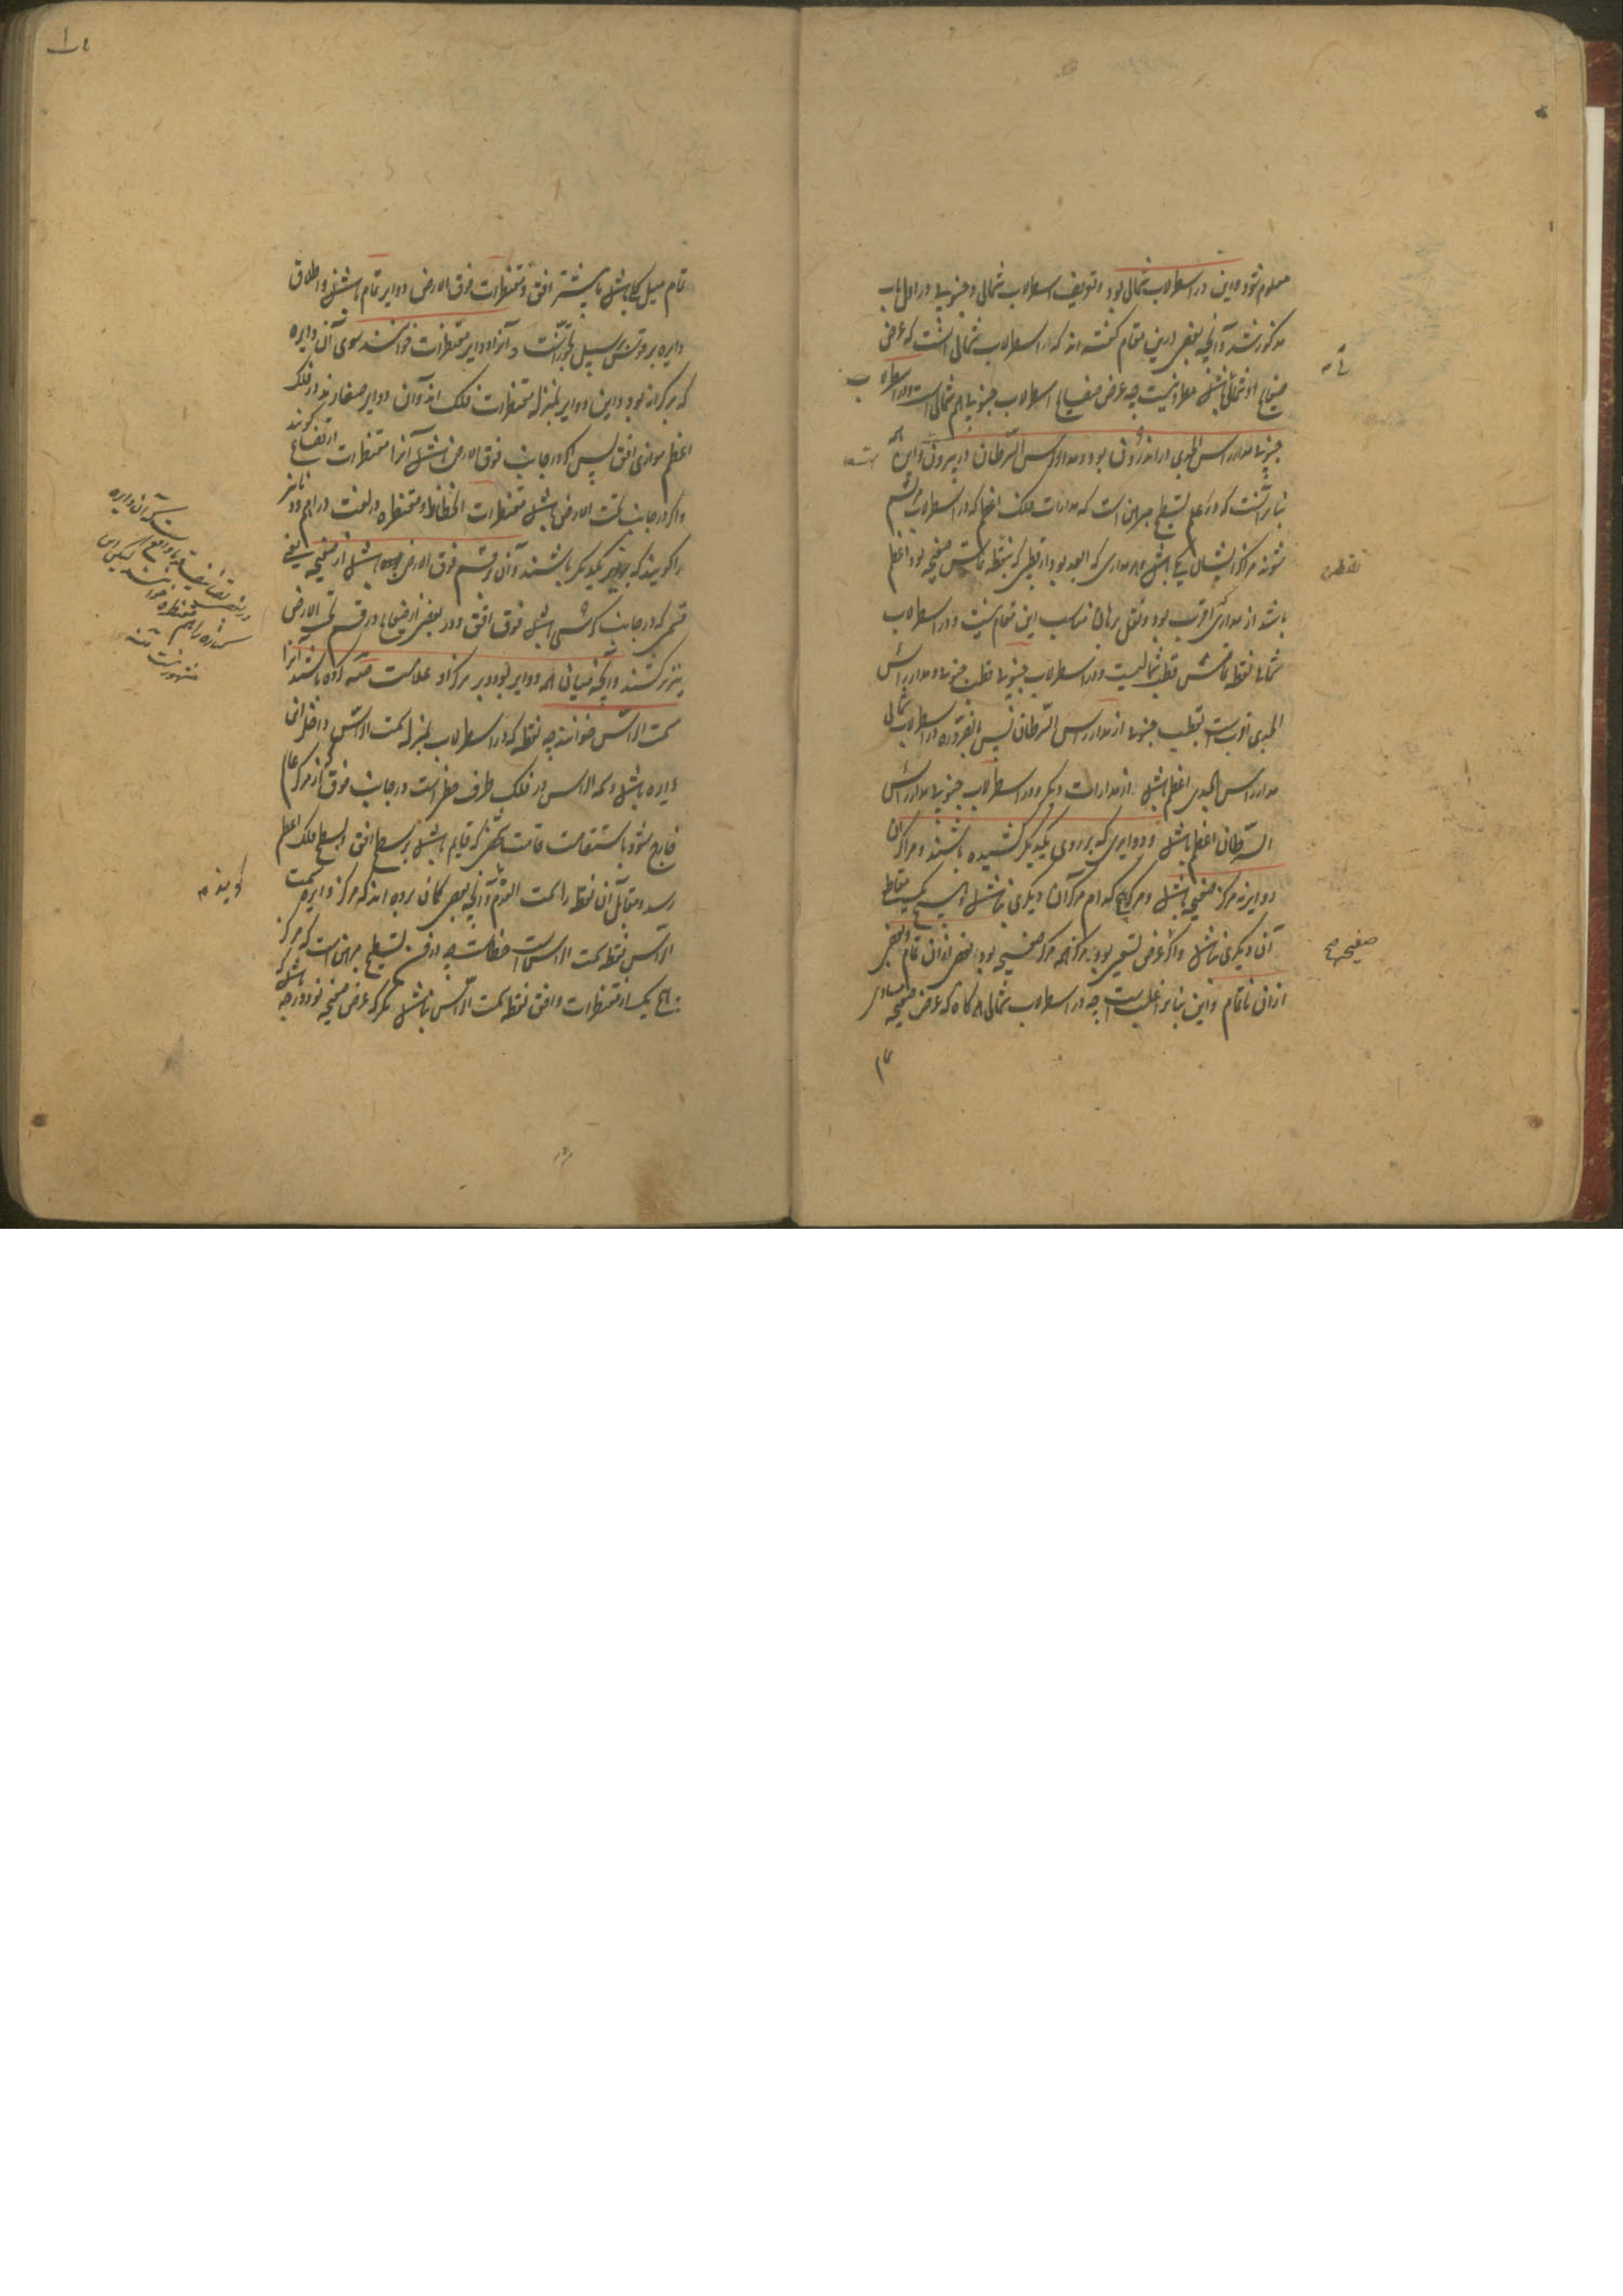 معلوم شود و این در اسطرلاب شمالی بود و تعریف اسطرلاب شمالی و جنوبی در اول باب
مذکور شد و آنچه بعضی درین مقام گفته‌اند که اسطرلاب شمالی آنست که عرض
صفایح او شمالی باشد مطرد نیست چه عرض صفایح اسطرلاب جنوبی هم شمالی است و در اسطرلاب
جنوبی مدار راس الجدی در اندرون بود و مدار راس السرطان در بیرون و این
بنابر آنست که در علم تسطیح مبرهن است که مدارات فلک اعظم که در اسطرلاب مرتسم
شوند مراکز ایشان یکی باشد و هر مداری که ابعد بود از قطبی که نقطه تماس صفیحه بود اعظم
باشد از مداری که اقرب بود و نقل برهان مناسب این مقام نیست و در اسطرلاب
شمالی نقطه تماس قطب شمالیست و در اسطرلاب جنوبی قطب جنوبی و مدار راس
الجدی اقرب است بقطب جنوبی از مدار راس السرطان پس بالضروره در اسطرلاب شمالی
مدار راس الجدی اعظم باشد از مدارات دیگر و در اسطرلاب جنوبی مدار راس
السرطان اعظم باشد و دوایری که بر روی یکدیگر کشیده باشند و مراکز آن
دوایر نه مرکز صفیحه باشد و مرکز هیچ کدام مرکز آن دیگری نباشد و هیچ یک مقاطع
آن دیگری نباشد و اگر عرض تسعین بود مرکز همه مرکز صفیحه بود بعضی از آن تمام و بعضی
از آن ناتمام و این بنابر اغلبیست چه در اسطرلاب شمالی هرگاه که عرض صفیحه مساوی
تمام
نقطه
صفیحه صح
تمام میل کلی باشد یا بیشتر افق و مقنطرات فوق الارض دوایر تمام باشند و اطلاق
دایره بر قوس بر سبیل تجوز است و آنرا دوایر مقنطرات خوانند سوی آن دایره
که بر کرانه بود و این دوایر بمنزله مقنطرات فلک‌اند و آن دوایر صغارند در فلک
اعظم موازی افق پس اگر در جانب فوق الارض باشد آنرا مقنطرات ارتفاع گویند
و اگر در جانب تحت الارض باشد مقنطرات انحطاط و مقنطره در لغت دراهم و دنانیر
را گویند که بر زبر یکدیگر باشند و آن قسم فوق الارض باشد از صفیحه یعنی
قسمی که در جانب کرسی باشد فوق افق و در بعضی از صفایح در قسم تحت الارض
نیز کشند و آنچه میانی همه دوایر بود و بر مرکز او علامت صه کرده باشند آنرا
سمت الراس خوانند چه نقطه که در اسطرلاب بمنزله سمت الراس و داخل آن
دایره باشد و سمت الراس در فلک طرف خطی است در جانب فوق که از مرکز عالم
خارج شود باستقامت قامت شخصی که قایم باشد بر سطح افق و بسطح فلک اعظم
رسد و مقابل آن نقطه را سمت القدم و آنچه بعضی گمان برده‌اند که مرکز دایره سمت
الراس نقطه سمت الراس است خطاست چه در فن تسطیح مبرهن است که مرکز
هیچ یک از مقنطرات و افق نقطه سمت الراس نباشد مگر که عرض صفیحه نود درجه باشد
گویند